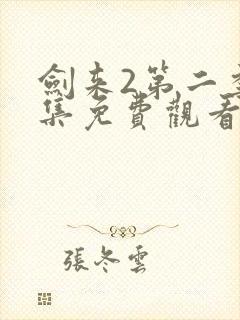 劍来2第二季
集免費觀看
張冬雲